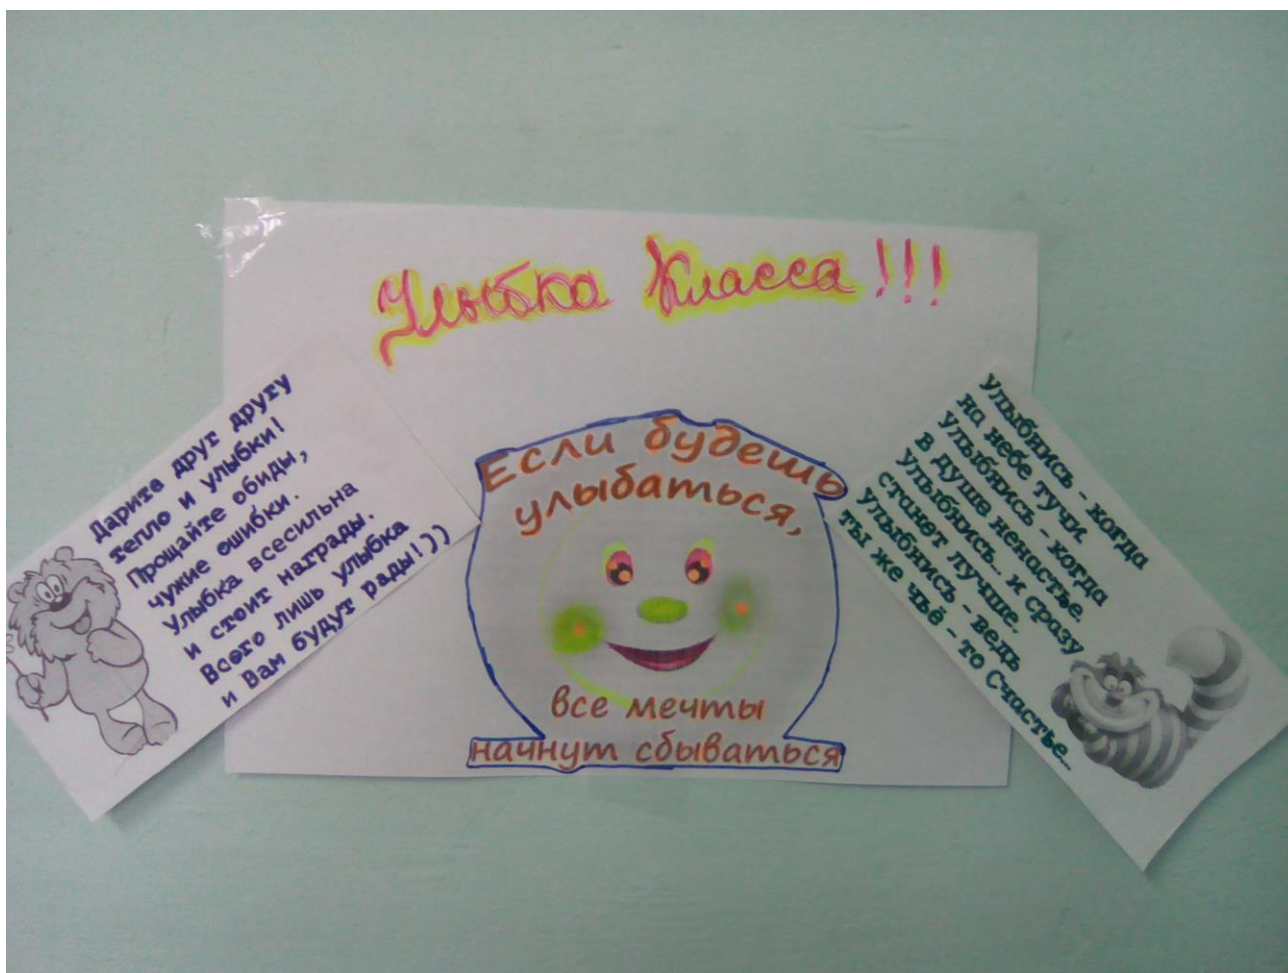 Улыбка Класса!!!
Дарите друг другу
тепло и улыбки!
Прощайте обиды,
чужие ошибки.
Улыбка всесильна
и стоит награды.
Всего лишь улыбка
и Вам будут рады!))
Если будешь
улыбаться,
все мечты
начнут сбываться
Улыбнись - когда
на небе тучи.
Улыбнись - когда
в душе ненастье.
Улыбнись.. и сразу
станет лучше.
Улыбнись - ведь
ты же чьё - то Счастье..